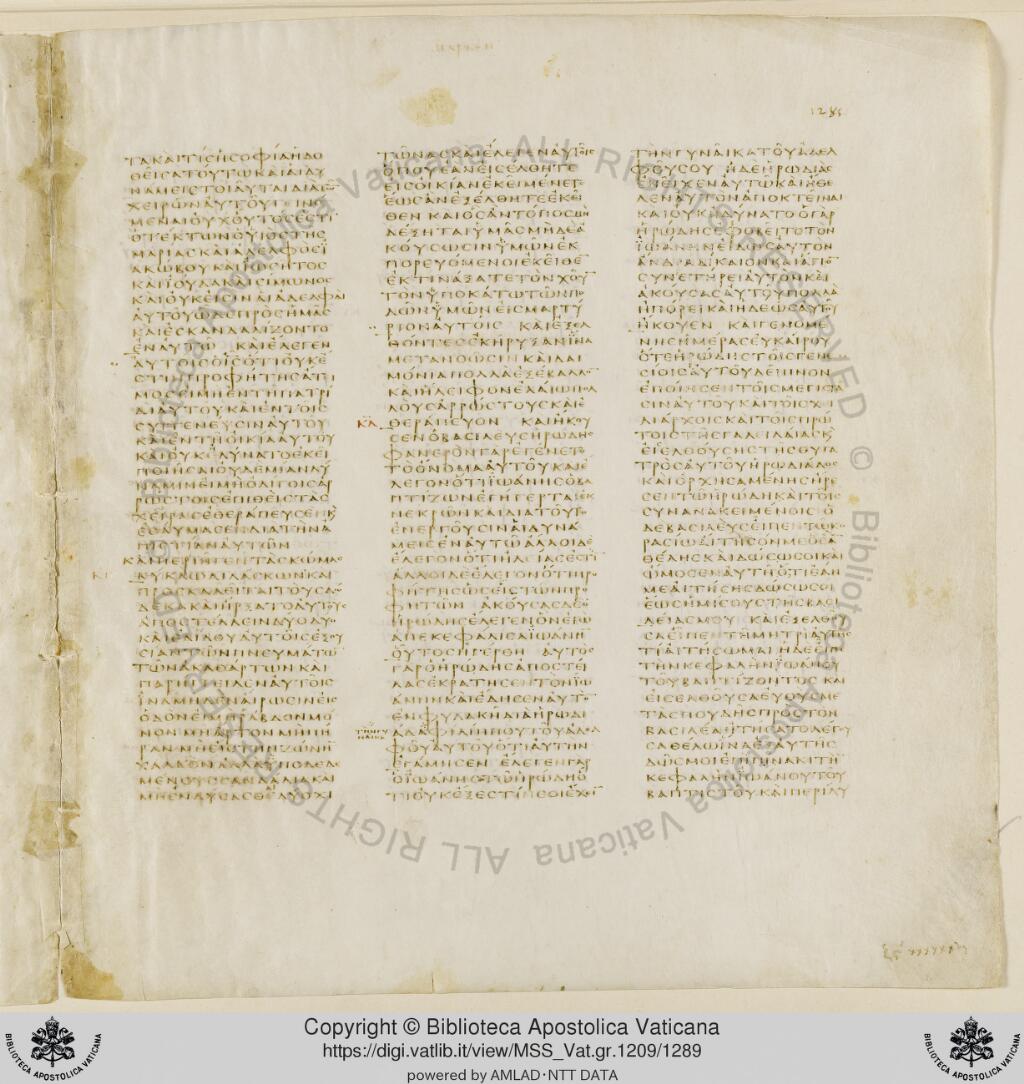 ΤΑΚΑΙΤΙϹΗϹΟΦΙΑΗΔΟ
ΘΕΙϹΑΤΟΥΤΩΚΑΙΑΙΔΥ
ΝΑΜΕΙϹΤΟΙΑΥΤΑΙΔΙΑΤΩ
ΧΕΙΡΩΝΑΥΤΟΥΓΕΙΝΟ
ΜΕΝΑΙΟΥΧΟΥΤΟϹΕϹΤΙ
ΟΤΕΚΤΩΝΟΥΙΟϹΤΗϹ
ΜΑΡΙΑϹΚΑΙΑΔΕΛΦΟϹΙ
ΑΚΩΒΟΥΚΑΙΙΩϹΗΤΟϹ
ΚΑΙΙΟΥΔΑΚΑΙϹΙΜΩΝΟϹ
ΚΑΙΟΥΚΕΙϹΙΝΑΙΑΔΕΛΦΑΙ
ΑΥΤΟΥΩΔΕΠΡΟϹΗΜΑϹ
ΚΑΙΕϹΚΑΝΔΑΛΙΖΟΝΤΟ
ΕΝΑΥΤΩ ΚΑΙΕΛΕΓΕΝ
ΑΥΤΟΙϹΟΙϹΟΤΙΟΥΚΕ
ϹΤΙΝΠΡΟΦΗΤΗϹΑΤΙ
ΜΟϹΕΙΜΗΕΝΤΗΠΑΤΡΙ
ΔΙΑΥΤΟΥΚΑΙΕΝΤΟΙϹ
ϹΥΓΓΕΝΕΥϹΙΝΑΥΤΟΥ
ΚΑΙΕΝΤΗΟΙΚΙΑΑΥΤΟΥ
ΚΑΙΟΥΚΕΔΥΝΑΤΟΕΚΕΙ
ΠΟΙΗϹΑΙΟΥΔΕΜΙΑΝΔΥ
ΝΑΜΙΝΕΙΜΗΟΛΙΓΟΙϹΑΡ
ΡΩϹΤΟΙϹΕΠΙΘΕΙϹΤΑϹ
ΧΕΙΡΑϹΕΘΕΡΑΠΕΥϹΕΝΚ
ΕΘΑΥΜΑϹΕΝΔΙΑΤΗΝΑ
ΠΙϹΤΙΑΝΑΥΤΩΝ
ΚΑΙΠΕΡΙΗΓΕΝΤΑϹΚΩΜΑϹ
ΚΥΚΛΩΔΙΔΑϹΚΩΝΚΑΙ
ΠΡΟϹΚΑΛΕΙΤΑΙΤΟΥϹΔΩ
ΔΕΚΑΚΑΙΗΡΞΑΤΟΑΥΤΟΥϹ
ΑΠΟϹΤΕΛΛΕΙΝΔΥΟΔΥΟ
ΚΑΙΕΔΙΔΟΥΑΥΤΟΙϹΕΞΟΥ
ϹΙΑΝΤΩΝΠΝΕΥΜΑΤΩ
ΤΩΝΑΚΑΘΑΡΤΩΝΚΑΙ
ΠΑΡΗΓΓΕΙΛΕΝΑΥΤΟΙϹ
ΙΝΑΜΗΔΕΝΑΙΡΩϹΙΝΕΙϹ
ΟΔΟΝΕΙΜΗΡΑΒΔΟΝΜΟ
ΝΟΝΜΗΑΡΤΟΝΜΗΠΗ
ΡΑΝΜΗΕΙϹΤΗΝΖΩΝΗ
ΧΑΛΚΟΝΑΛΛΑΥΠΟΔΕΔΕ
ΜΕΝΟΥϹϹΑΝΔΑΛΙΑΚΑΙ
ΜΗΕΝΔΥϹΑϹΘΕΔΥΟΧΙ
ΤΩΝΑϹΚΑΙΕΛΕΓΕΝΑΥΤΟΙϹ
ΟΠΟΥΕΑΝΕΙϹΕΛΘΗΤΕ
ΕΙϹΟΙΚΙΑΝΕΚΕΙΜΕΝΕΤΕ
ΕΩϹΑΝΕΞΕΛΘΗΤΕΕΚΕΙ
ΘΕΝ ΚΑΙΟϹΑΝΤΟΠΟϹΜΗ
ΔΕΞΗΤΑΙΥΜΑϹΜΗΔΕΑ
ΚΟΥϹΩϹΙΝΥΜΩΝΕΚ
ΠΟΡΕΥΟΜΕΝΟΙΕΚΕΙΘΕ
ΕΚΤΙΝΑΞΑΤΕΤΟΝΧΟΥ
ΤΟΝΥΠΟΚΑΤΩΤΩΝΠΟ
ΔΩΝΥΜΩΝΕΙϹΜΑΡΤΥ
ΡΙΟΝΑΥΤΟΙϹ ΚΑΙΕΞΕΛ
ΘΟΝΤΕϹΕΚΗΡΥΞΑΝΙΝΑ
ΜΕΤΑΝΟΩϹΙΝΚΑΙΔΑΙ
ΜΟΝΙΑΠΟΛΛΑΕΞΕΒΑΛΛΟ
ΚΑΙΗΛΕΙΦΟΝΕΛΑΙΩΠΟΛ
ΛΟΥϹΑΡΡΩϹΤΟΥϹΚΑΙΕ
ΘΕΡΑΠΕΥΟΝ ΚΑΙΗΚΟΥ
ϹΕΝΟΒΑϹΙΛΕΥϹΗΡΩΔΗϹ
ΦΑΝΕΡΟΝΓΑΡΕΓΕΝΕΤΟ
ΤΟΟΝΟΜΑΑΥΤΟΥΚΑΙΕ
ΛΕΓΟΝΟΤΙΙΩΑΝΗϹΟΒΑ
ΠΤΙΖΩΝΕΓΗΓΕΡΤΑΙΕΚ
ΝΕΚΡΩΝΚΑΙΔΙΑΤΟΥΤΟ
ΕΝΕΡΓΟΥϹΙΝΑΙΔΥΝΑ
ΜΕΙϹΕΝΑΥΤΩΑΛΛΟΙΔΕ
ΕΛΕΓΟΝΟΤΙΗΛΕΙΑϹΕϹΤΙ
ΑΛΛΟΙΔΕΕΛΕΓΟΝΟΤΙΠΡΟ
ΦΗΤΗϹΩϹΕΙϹΤΩΝΠΡΟ
ΦΗΤΩΝ ΑΚΟΥϹΑϹΔΕΟ
ΗΡΩΔΗϹΕΛΕΓΕΝΟΝΕΓΩ
ΑΠΕΚΕΦΑΛΙϹΑΙΩΑΝΗ
ΟΥΤΟϹΗΓΕΡΘΗ ΑΥΤΟϹ
ΓΑΡΟΗΡΩΔΗϹΑΠΟϹΤΕΙ
ΛΑϹΕΚΡΑΤΗϹΕΝΤΟΝΙΩ
ΑΝΗΝΚΑΙΕΔΗϹΕΝΑΥΤΟ
ΕΝΦΥΛΑΚΗΔΙΑΗΡΩΔΙ
ΑΔΑΦΙΛΙΠΠΟΥΤΟΥΑΔΕΛ
ΦΟΥΑΥΤΟΥΟΤΙΑΥΤΗΝ
ΕΓΑΜΗϹΕΝ ΕΛΕΓΕΝΓΑΡ
ΟΙΩΑΝΗϹΤΩΗΡΩΔΗΟ
ΤΙΟΥΚΕΞΕϹΤΙΝϹΟΙΕΧΕΙ
ΤΗΝΓΥΝΑΙΚΑΤΟΥΑΔΕΛ
ΦΟΥϹΟΥ ΗΔΕΗΡΩΔΙΑϹ
ΕΝΕΙΧΕΝΑΥΤΩΚΑΙΗΘΕ
ΛΕΝΑΥΤΟΝΑΠΟΚΤΕΙΝΑΙ
ΚΑΙΟΥΚΗΔΥΝΑΤΟΟΓΑΡ
ΗΡΩΔΗϹΕΦΟΒΕΙΤΟΤΟΝ
ΙΩΑΝΗΝΕΙΔΩϹΑΥΤΟΝ
ΑΝΔΡΑΔΙΚΑΙΟΝΚΑΙΑΓΙΟ
ϹΥΝΕΤΗΡΕΙΑΥΤΟΝΚΑΙ
ΑΚΟΥϹΑϹΑΥΤΟΥΠΟΛΛΑ
ΗΠΟΡΕΙΚΑΙΗΔΕΩϹΑΥΤΟΥ
ΗΚΟΥΕΝ ΚΑΙΓΕΝΟΜΕ
ΝΗϹΗΜΕΡΑϹΕΥΚΑΙΡΟΥ
ΟΤΕΗΡΩΔΗϹΤΟΙϹΓΕΝΕ
ϹΙΟΙϹΑΥΤΟΥΔΕΙΠΝΟΝ
ΕΠΟΙΗϹΕΝΤΟΙϹΜΕΓΙϹΤΑ
ϹΙΝΑΥΤΟΥΚΑΙΤΟΙϹΧΙ
ΛΙΑΡΧΟΙϹΚΑΙΤΟΙϹΠΡΩ
ΤΟΙϹΤΗϹΓΑΛΕΙΛΑΙΑϹΚ
ΕΙϹΕΛΘΟΥϹΗϹΤΗϹΘΥΓΑ
ΤΡΟϹΑΥΤΟΥΗΡΩΔΙΑΔΟϹ
ΚΑΙΟΡΧΗϹΑΜΕΝΗϹΗΡΕ
ϹΕΝΤΩΗΡΩΔΗΚΑΙΤΟΙϹ
ϹΥΝΑΝΑΚΕΙΜΕΝΟΙϹ Ο
ΔΕΒΑϹΙΛΕΥϹΕΙΠΕΝΤΩΚΟ
ΡΑϹΙΩΑΙΤΗϹΟΝΜΕΟΕΑ
ΘΕΛΗϹΚΑΙΔΩϹΩϹΟΙΚΑΙ
ΩΜΟϹΕΝΑΥΤΗΟΤΙΕΑΝ
ΜΕΑΙΤΗϹΗϹΔΩϹΩϹΟΙ
ΕΩϹΗΜΙϹΟΥϹΤΗϹΒΑϹΙ
ΛΕΙΑϹΜΟΥ ΚΑΙΕΞΕΛΘΟΥ
ϹΑΕΙΠΕΝΤΗΜΗΤΡΙΑΥΤΗϹ
ΤΙΑΙΤΗϹΩΜΑΙΗΔΕΕΙΠΕ
ΤΗΝΚΕΦΑΛΗΝΙΩΑΝΟΥ
ΤΟΥΒΑΠΤΙΖΟΝΤΟϹ ΚΑΙ
ΕΙϹΕΛΘΟΥϹΑΕΥΘΥϹΜΕ
ΤΑϹΠΟΥΔΗϹΠΡΟϹΤΟΝ
ΒΑϹΙΛΕΑΗΤΗϹΑΤΟΛΕΓΟΥ
ϹΑΘΕΛΩΙΝΑΕΞΑΥΤΗϹ
ΔΩϹΜΟΙΕΠΙΠΙΝΑΚΙΤΗ
ΚΕΦΑΛΗΝΙΩΑΝΟΥΤΟΥ
ΒΑΠΤΙϹΤΟΥΚΑΙΠΕΡΙΛΥ
Copyright © Biblioteca Apostolica Vaticana
https://digi.vatlib.it/view/MSS_Vat.gr.1209/1289
powered by AMLAD·NTT DATA